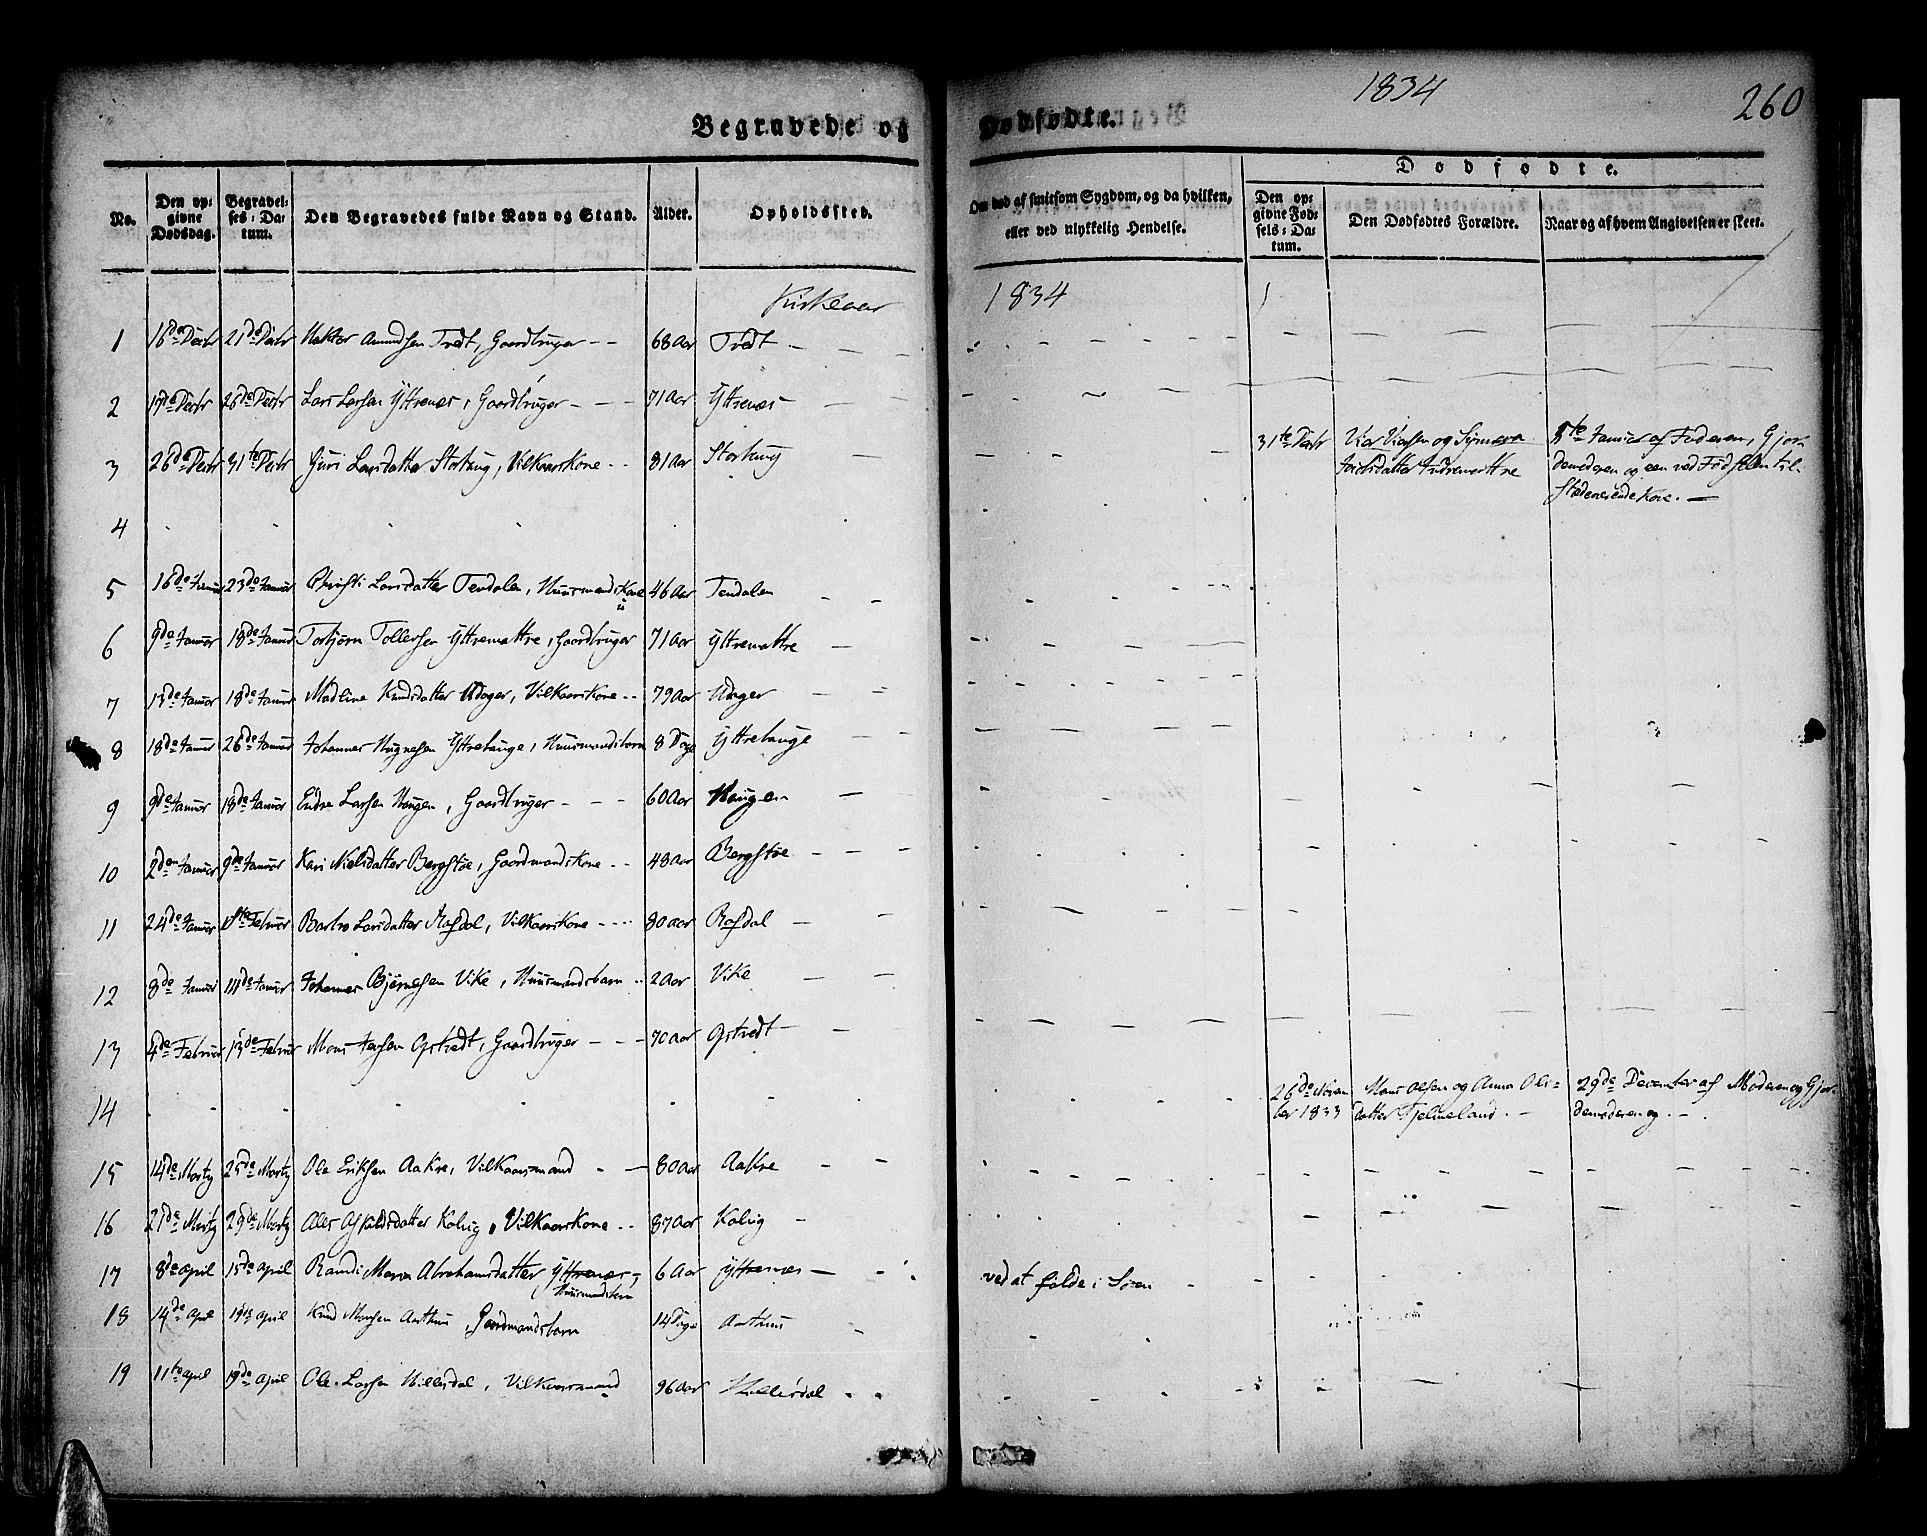 1834
260
Begravede og Dødfødte.
Dødfødte.
No.
Den opgivne Dødsdag.
Begravelses-Datum.
Den Begravedes fulde Navn og Stand.
Alder.
Opholdssted.
Om død af smitsom Sygdom, og da hvilken, eller ved ulykkelig Hendelse.
Den opgivne Fødsels-Datum.
Den Dødfødtes Forældre.
Naar og af hvem Angivelsen er skeet.
Kirkeaar 1834
1 16de Decbr 21de Decbr Amundsen Tvedt, Gaardbruger 68 Aar Tvedt
2 17de Decbr 26de Decbr Lars Larsen Yttrenæs, Gaardbruger 71 Aar Yttrenæs
3 26de Decbr 31te Decbr Guri Larsdatter Vilkaarskone 81 Aar
31te Decbr og
Januar af Faderen, Gjor-
demoderen og een ved Fødselen til-
stedeværende Kone.
4
5 16de Januar 23de Januar Christi Larsdatter Tendalen, Huusmandskone 46 Aar Tendalen
6 9de Januar 18de Januar Torbjørn Tollefsen Yttremattre, Gaardbruger 71 Aar Yttremattre
7 13de Januar 18de Januar Madline Knudsdatter Vilkaarskone 79 Aar
8 18de Januar 26de Januar Johannes Yttrehauge, Huusmandsbarn 8 Dage Yttrehauge
9 9de Januar 18de Januar Endre Larsen Haugen, Gaardbruger 60 Aar Haugen
10 2den Januar 9de Januar Kari Nielsdatter Bergstøe, Gaardmandskone 48 Aar Bergstøe
11 24de Januar 1ste Februar Barbro Larsdatter Vilkaarskone 80 Aar
12 8de Januar 11de Januar Johannes Bjørnesen Vike, Huusmandsbarn 2 Aar Vike
13 4de Februar 13de Februar Mons Opstvedt, Gaardbruger 70 Aar Opstvedt
14
26de Novem-
ber 1833
Mons Olsen og Anna Ols-
datter Fjelmeland.
29de December af Moderen og Gjor-
demoderen og
15 14de Martz 25de Martz Ole Eriksen Aakre, Vilkaarsmand 80 Aar Aakre
16 21de Martz 29de Martz Vilkaarskone 87 Aar
17 8de April 15de April Randi Maria Abrahamsdatter Yttrenæs, 6 Aar Yttrenæs
Huusmandsbarn
ved at falde i Søen
18 14de April 19de April Knud Monsen Aarthun, Gaardmandsbarn 14 Dage Aarthun
19 11te April 19de April Ole Larsen Hillesdal, Vilkaarsmand 96 Aar Hillesdal